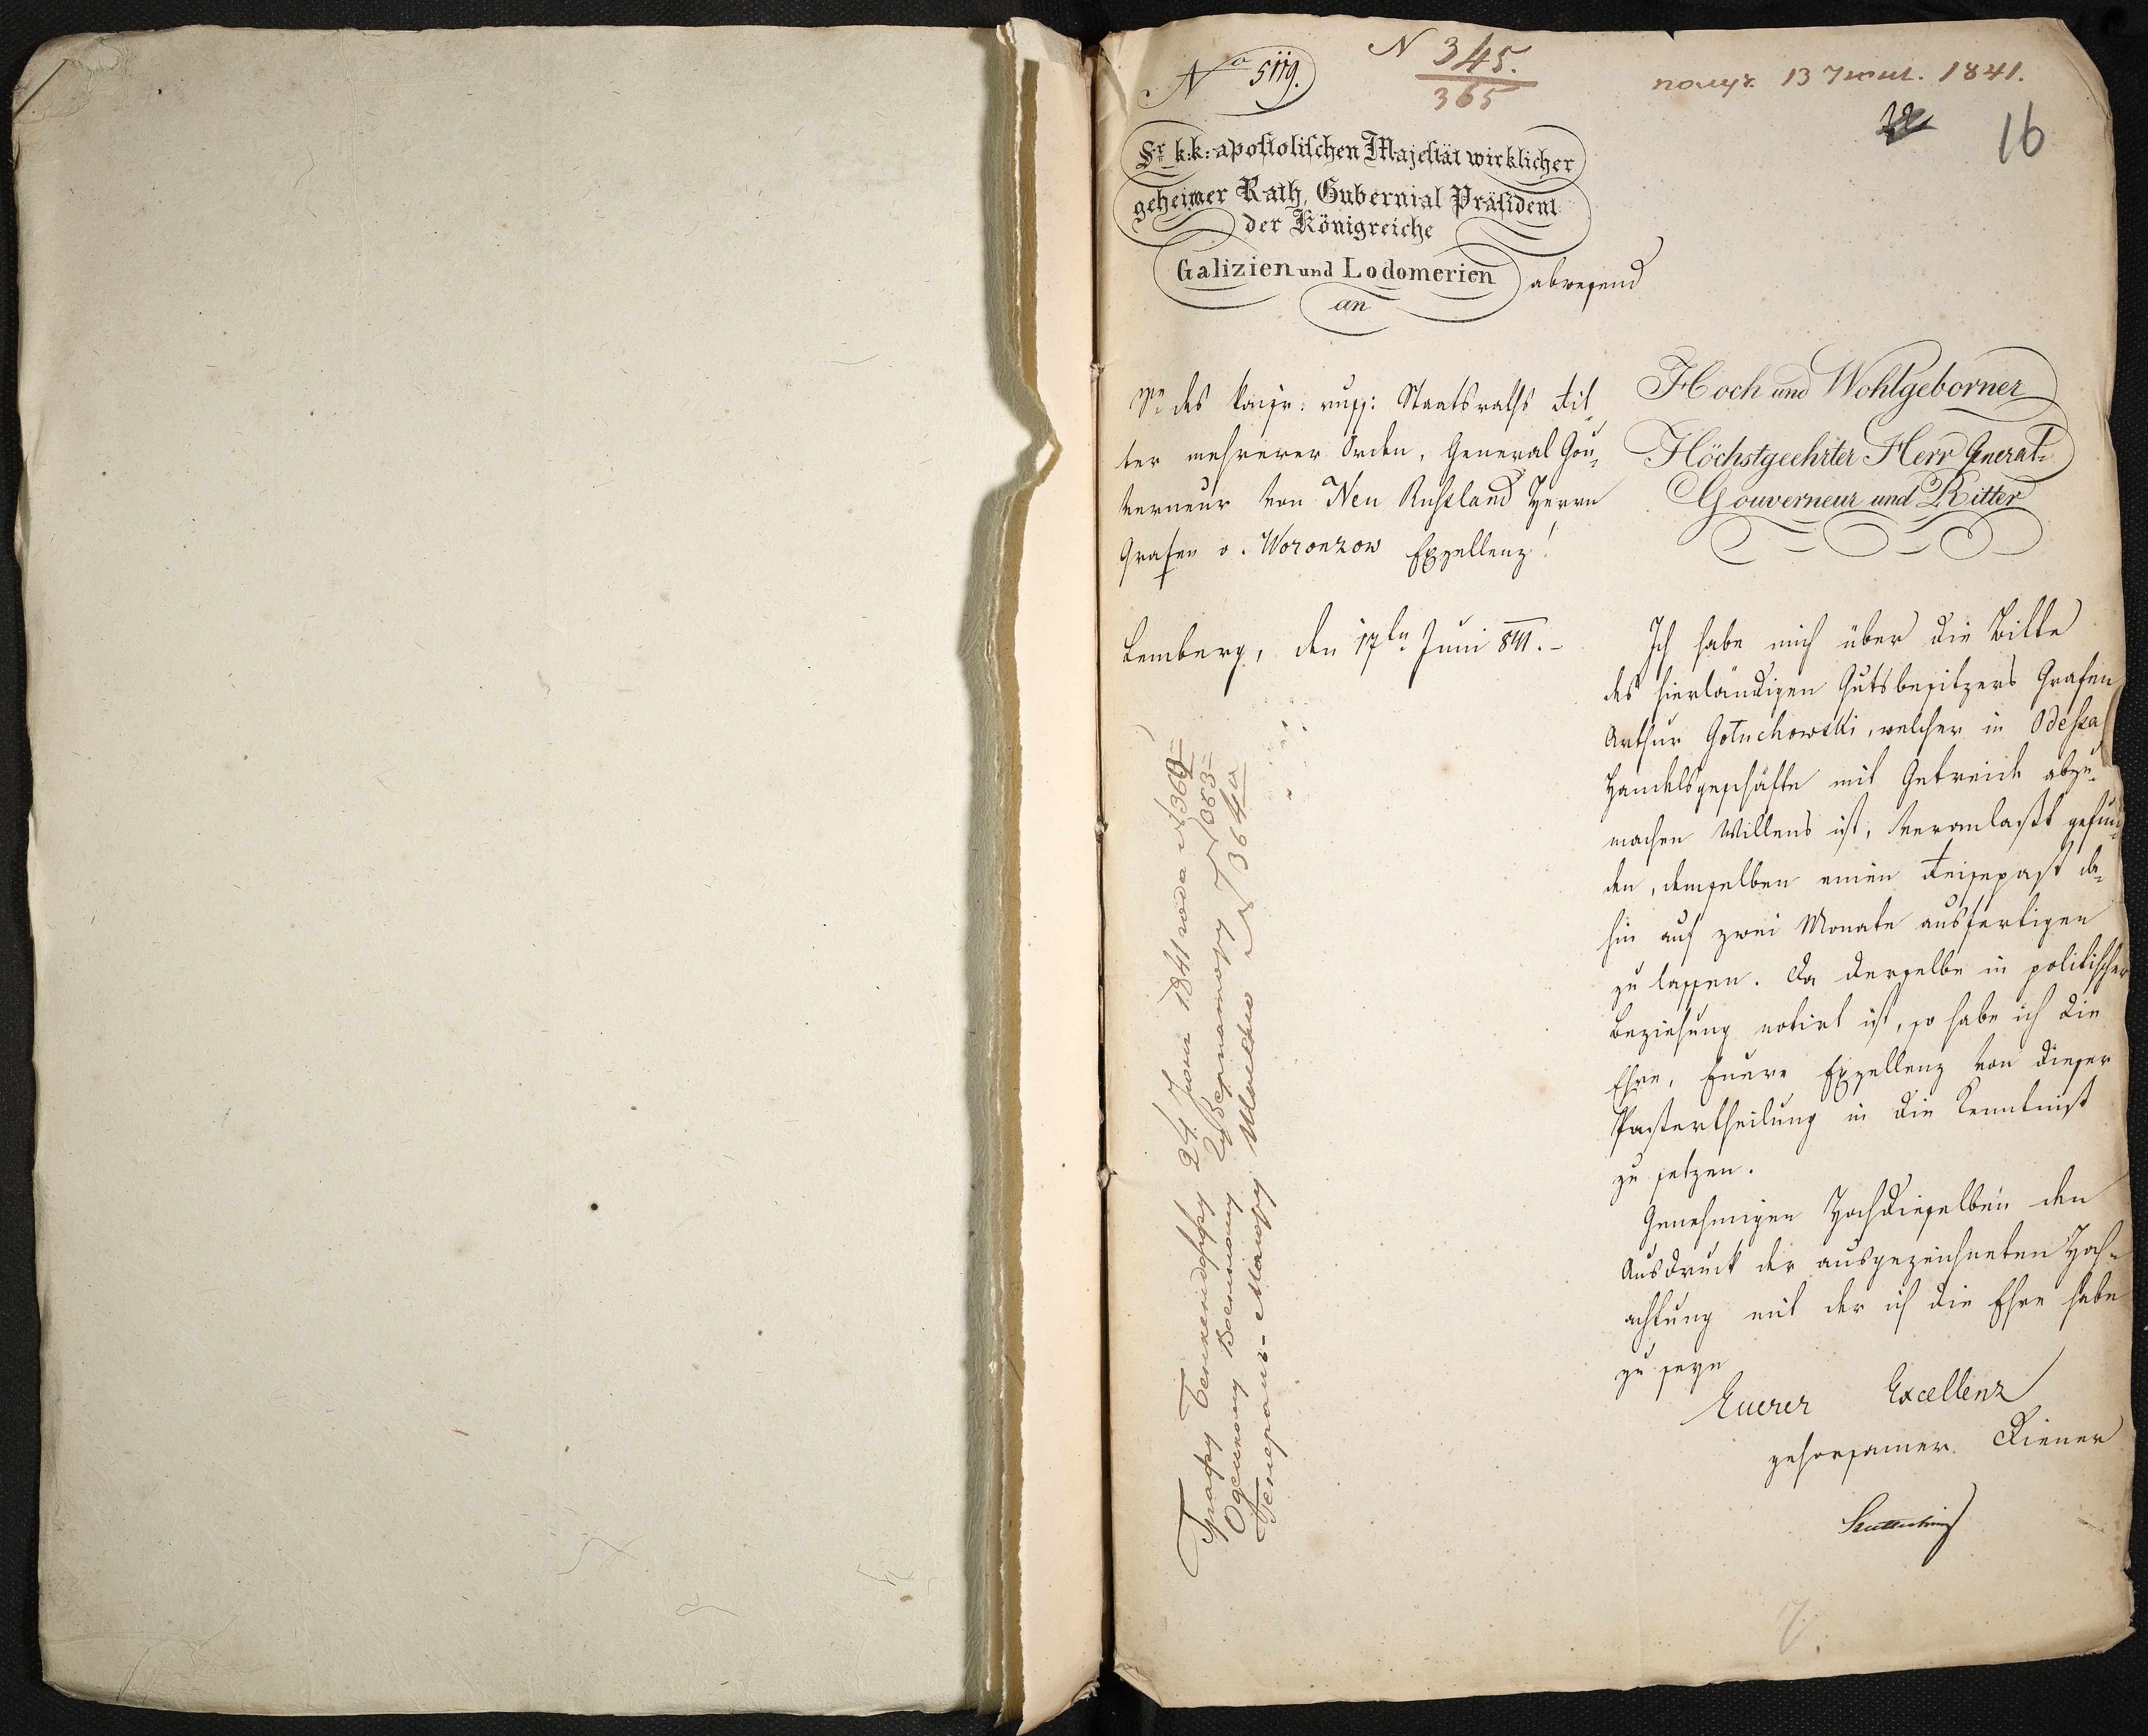 No 5119.
N 345.
365
получ. 13 Іюн. 1841.
16
Sr k:k: apostolischen Majestät wirklicher
geheimer Rath, Gubernial Präsident
der Königreiche
Galizien und Lodomerien abwesend
an
Sr des kaiser: russ: Staatsraths Rit„
ter mehrerer Orden, General Gou„
verneur von Neu Russland Herrn
Grafen v. Woronzow Exzellenz!
Lemberg, den 17ten Juni 841.–
Hoch und Wohlgeborner
Höchstgeehrter Herr General„
Gouverneur und Ritter
Ich habe mich über die Bitte
des hierländigen Gutsbesitzers Grafen
Arthur Gołuchowski, welcher in Odessa
Handelsgeschäfte mit Getreide abzu„
machen Willens ist, veranlaßt gefun„
den, demselben einen Reisepaß da„
hin auf zwei Monate ausfertigen
zu lassen. Da derselbe in politischer
Beziehung notirt ist, so habe ich die
Ehre, Euere Exzellenz von dieser
Paßertheilung in die Kenntniß
zu setzen.
Genehmigen Hochdieselben den
Ausdruck der ausgezeichneten Hoch„
achtung mit der ich die Ehre habe
zu seyn
Euerer Excellenz
gehorsamer Diener
Графу Бенкендорфу 24 Іюня 1841 года №
Одесскому Военному Губернатору №
Генералъ-Маіору №